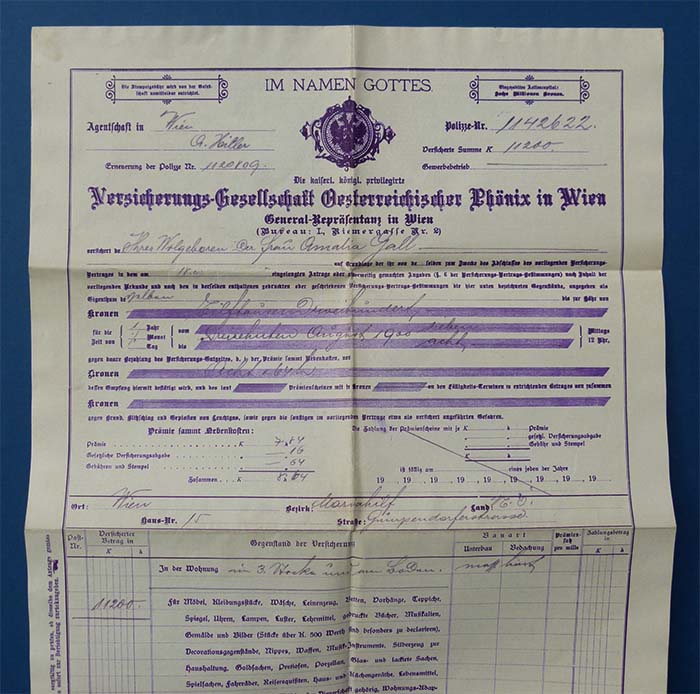 IM NAMEN GOTTES.
Die Stempelgebühr wird von der Gesell-
schaft unmittelbar entrichtet.
Eingezahltes Actiencapital:
Sechs Millionen Kronen.
Agentschaft in Wien
A. Hiller
Erneuerung der Polizze Nr. 1120809.
Polizze-Nr. 1142622.
Versicherte Summe K 11200.
Gewerbebetrieb
Die kaiserl. königl. privilegirte
Versicherungs-Gesellschaft Oesterreichischer Phönix in Wien
General-Repräsentanz in Wien
(Bureau: I., Riemergasse Nr. 2)
versichert der Frau Amalia Gall
auf Grundlage der ihr von de selben zum Zwecke des Abschlusses des vorliegenden Versicherungs-
Vertrages in dem am eingelegten Antrage oder anderweitig gemachten Angaben (§. 6 der Versicherungs-Vertrags-Bestimmungen) nach Inhalt der
vorliegenden Urkunde und nach den in derselben enthaltenen gedruckten oder geschriebenen Versicherungs-Vertrags-Bestimmungen die hier unten bezeichneten Gegenstände, angegeben als
Eigenthum de selben bis zur Höhe von
Kronen
für die Zeit von 1 Jahr
Monat
Tag
vom August 1900 sieben
bis acht
Mittags
12 Uhr,
gegen baare Bezahlung des Versicherungs-Entgeltes, d. i. der Prämie sammt Nebenkosten, mit
Kronen Acht 64 h
dessen Empfang hiermit bestätigt wird, und des laut Prämienscheinen mit je Kronen an den Fälligkeits-Terminen zu entrichtenden Betrages von zusammen
Kronen
gegen Brand, Blitzschlag und Explosion von Leuchtgas, sowie gegen die sonstigen im vorliegenden Vertrage etwa als versichert angeführten Gefahren.
Prämie sammt Nebenkosten:
Prämie K 7.84
Gesetzliche Versicherungsabgabe 16
Gebühren und Stempel 64
Zusammen K 8.64
Die Zahlung der Prämienscheine mit je K h Prämie
gesetzl. Versicherungsabgabe
Gebühr und Stempel
K h
ist fällig am eines jeden der Jahre
19 19 19 19 19 19 19 19 19
Ort: Wien
Bezirk: Mariahilf
Land N. Ö.
Haus-Nr. 15
Straße: Gumpendorferstrasse
Post-
Nr.
Versicherter
Betrag in
K h
Gegenstand der Versicherung
Bauart
Unterbau Bedachung
Prämien-
satz
pro mille
Zahlungsbetrag
in
K h
In der Wohnung im 3. Stocke und am Boden. hart
11200. Für Möbel, Kleidungsstücke, Wäsche, Leinenzeug, Betten, Vorhänge, Teppiche,
Spiegel, Uhren, Lampen, Luster, Lehrmittel, gedruckte Bücher, Musikalien,
Gemälde und Bilder (Stücke über K. 500 Werth sind besonders zu declariren),
Decorationsgegenstände, Nippes, Waffen, Musik-Instrumente, Silberzeug zur
Haushaltung, Goldsachen, Pretiosen, Porzellan, Glas- und lackirte Sachen,
Spielsachen, Fahrräder, Reiserequisiten, Haus- und Küchengeräthe, Lebensmittel,